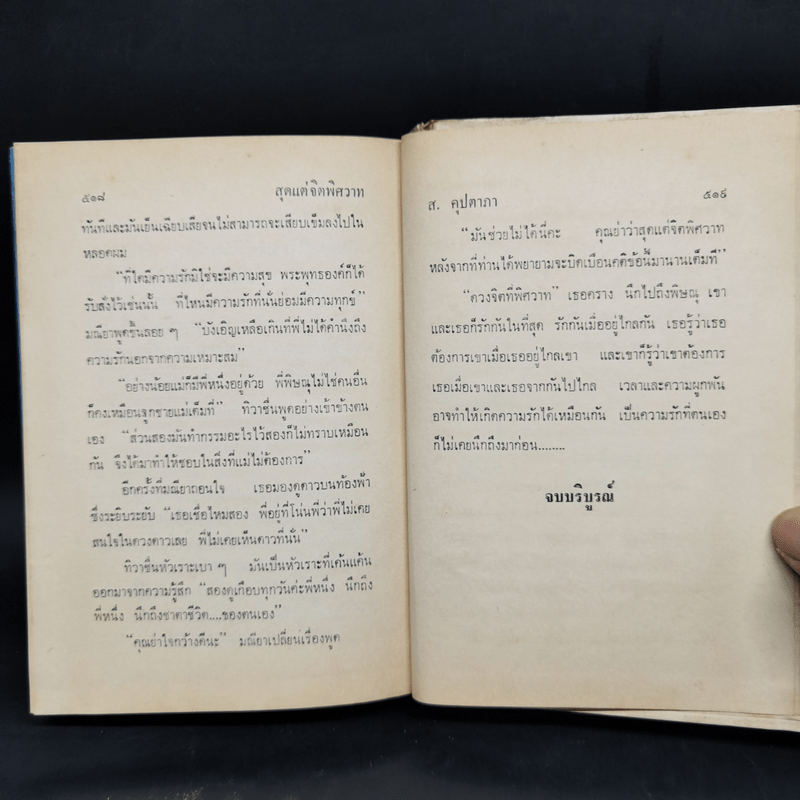 ๕๑๘ สุดแต่จิตพิศวาท
ทันทีและมันเย็นเฉียบเสียจนไม่สามารถจะเสียบเข็มลงไปใน
หลอดผม
“ที่ใดมีความรักมิใช่จะมีความสุข พระพุทธองค์ก็ได้
รับสั่งไว้เช่นนั้น ที่ไหนมีความรักที่นั่นย่อมมีความทุกข์”
มณียาพูดขึ้นลอย ๆ “บังเอิญเหลือเกินที่พี่ไม่ได้คำนึงถึง
ความรักนอกจากความเหมาะสม”
“อย่างน้อยแม่ก็มีพี่หนึ่งอยู่ด้วย พี่พิษณุไม่ใช่คนอื่น
ก็คงเหมือนลูกชายแม่เต็มที่” ทิวาชื่นพูดอย่างเข้าข้างตน
เอง “ส่วนสองมันทำกรรมอะไรไว้สองก็ไม่ทราบเหมือน
กัน จึงได้มาทำให้ชอบในสิ่งที่แม่ไม่ต้องการ”
อีกครั้งที่มณียาถอนใจ เธอมองดูดาวบนท้องฟ้า
ซึ่งระยิบระยับ “เธอเชื่อไหมสอง พี่อยู่ที่โน่นพี่ว่าพี่ไม่เคย
สนใจในดวงดาวเลย พี่ไม่เคยเห็นดาวที่นั่น”
ทิวาชื่นหัวเราะเบา ๆ มันเป็นหัวเราะที่เค้นแค้น
ออกมาจากความรู้สึก “สองดูเกือบทุกวันค่ะพี่หนึ่ง นึกถึง
พี่หนึ่ง นึกถึงชาตาชีวิต....ของตนเอง”
“คุณย่าใจกว้างดีนะ” มณียาเปลี่ยนเรื่องพูด
ส. คุปตาภา ๕๑๙
“มันช่วยไม่ได้นี่คะ คุณย่าว่าสุดแต่จิตพิศวาท
หลังจากที่ท่านได้พยายามจะบิดเบือนคติข้อนี้มานานเต็มที”
“ดวงจิตที่พิศวาท” เธอคราง นึกไปถึงพิษณุ เขา
และเธอก็รักกันในที่สุด รักกันเมื่ออยู่ไกลกัน เธอรู้ว่าเธอ
ต้องการเขาเมื่อเธออยู่ไกลเขา และเขาก็รู้ว่าเขาต้องการ
เธอเมื่อเขาและเธอจากกันไปไกล เวลาและความผูกพัน
อาจทำให้เกิดความรักได้เหมือนกัน เป็นความรักที่ตนเอง
ก็ไม่เคยนึกถึงมาก่อน........
จบบริบูรณ์